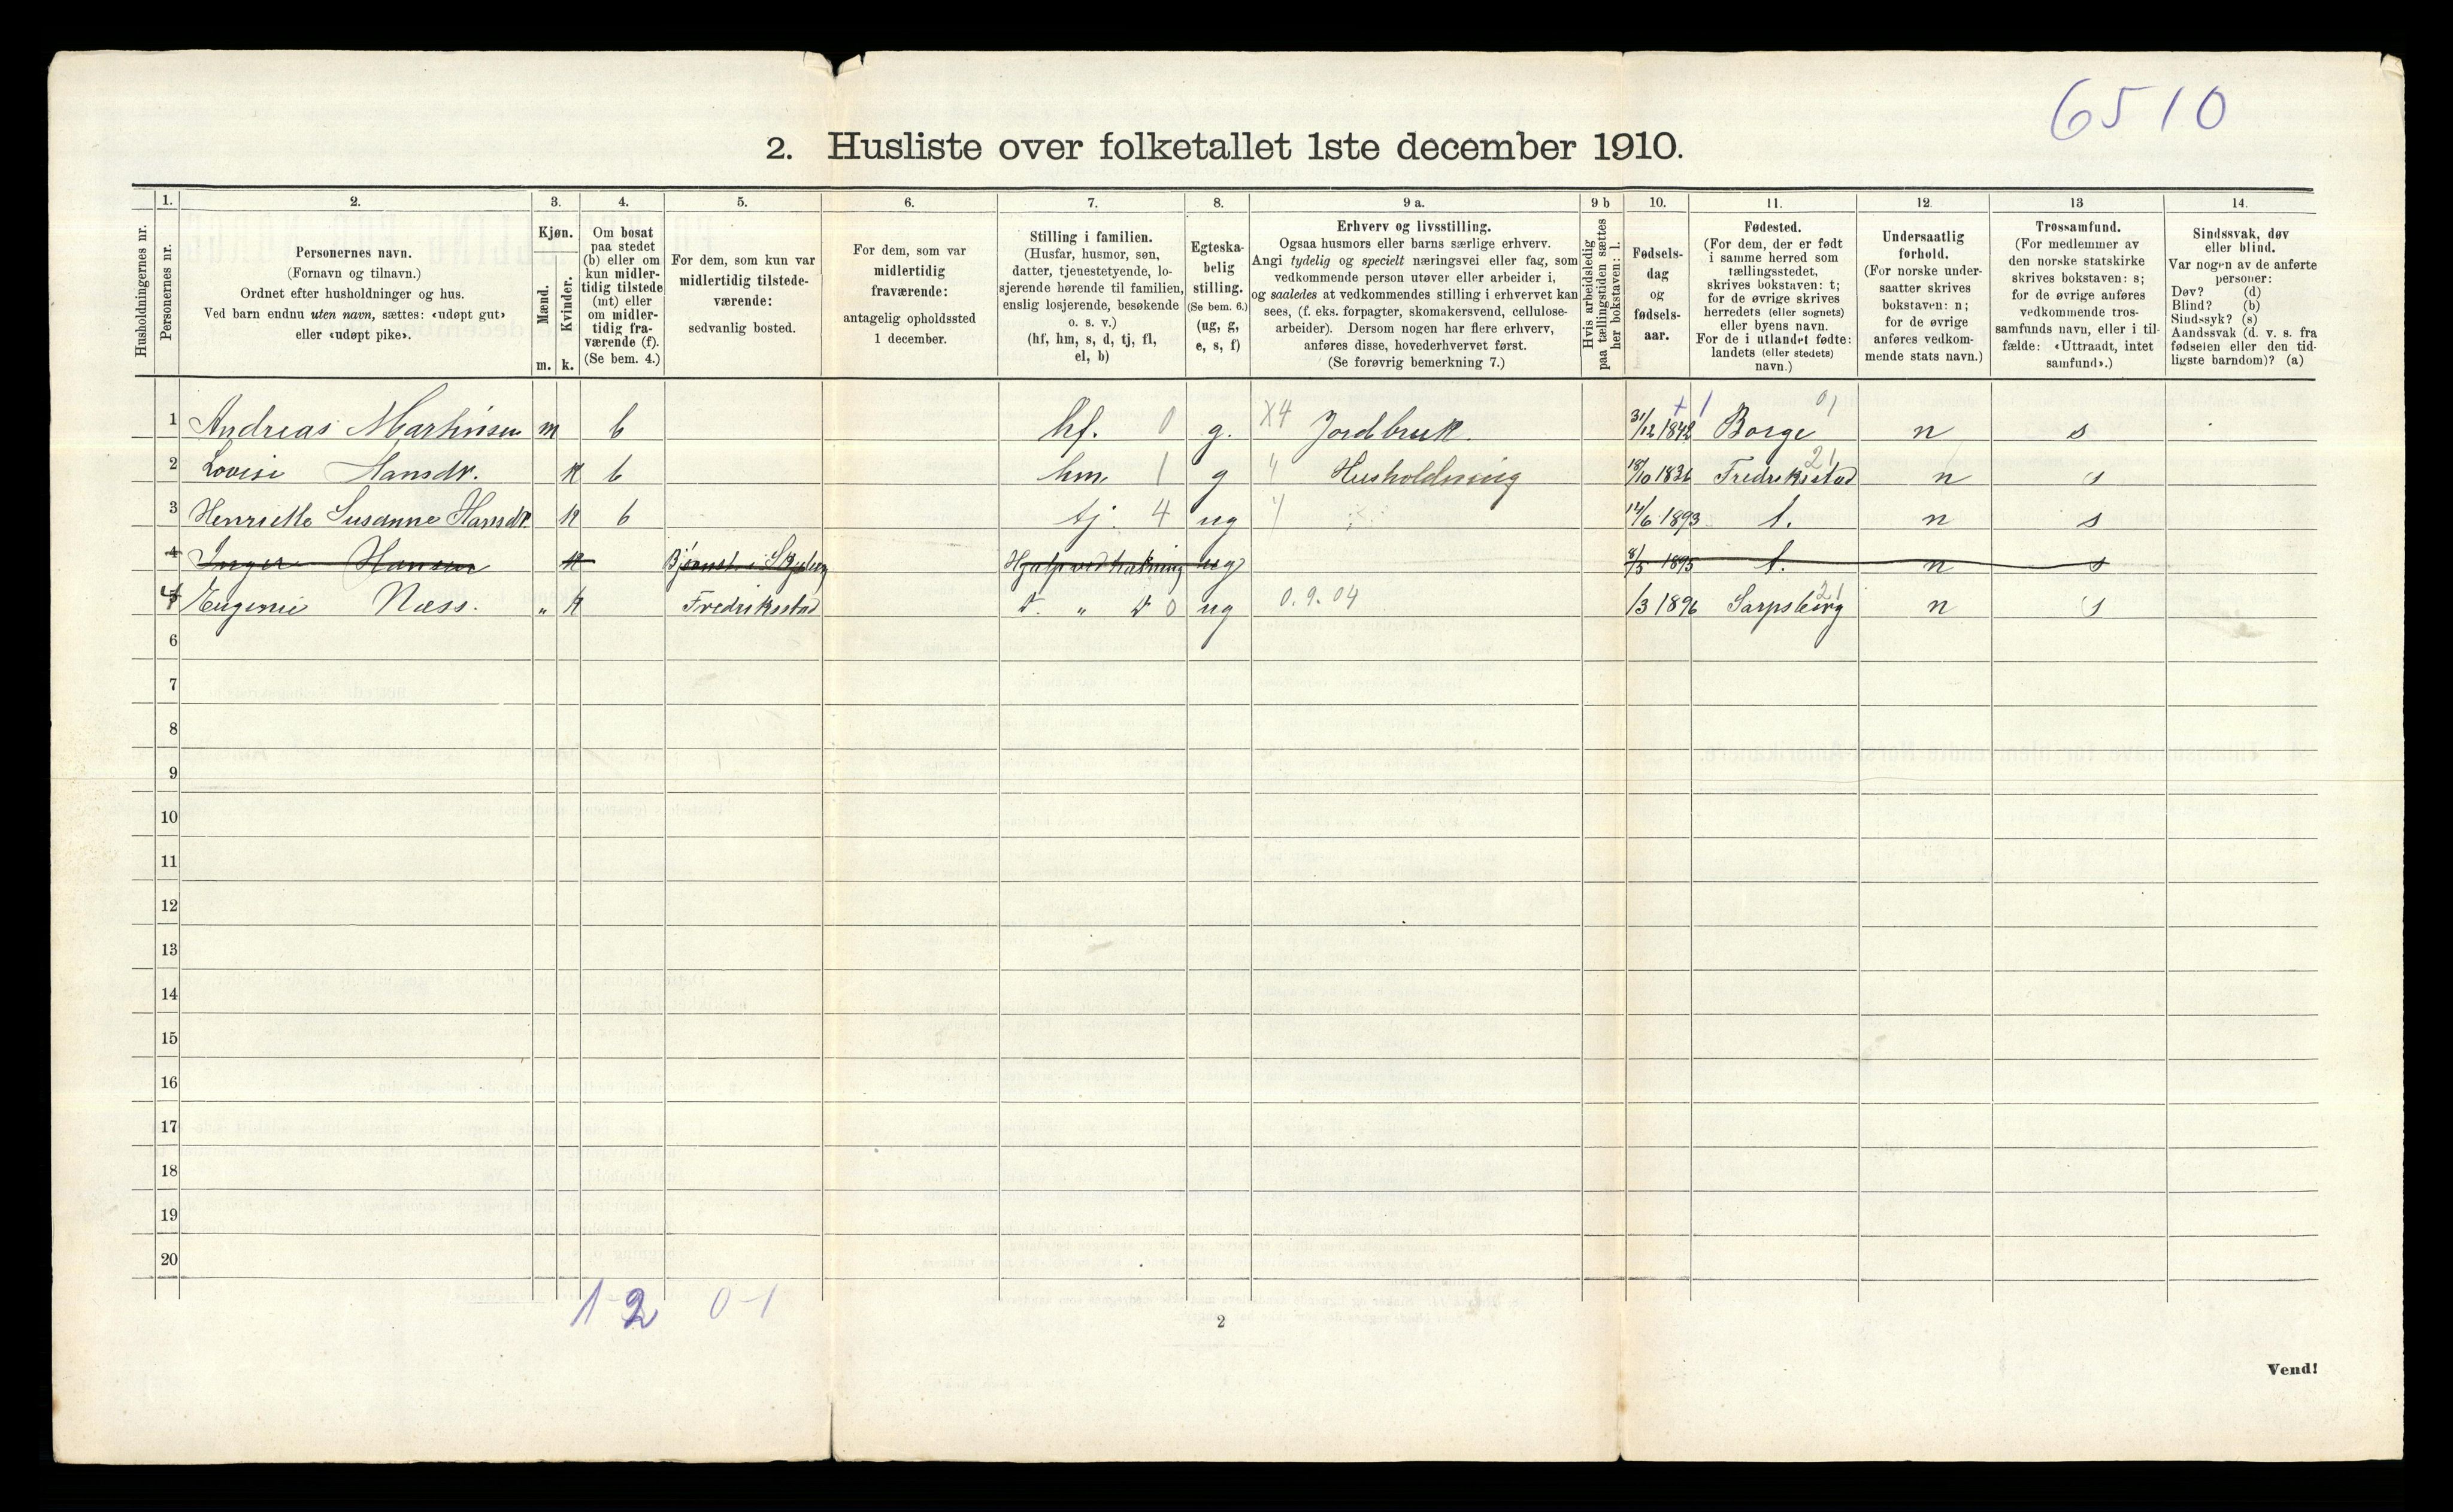 6510
2. Husliste over folketallet 1ste december 1910.
Husholdningernes nr.
1.
Personernes nr.
2.
Personernes navn.
(Fornavn og tilnavn.)
Ordnet efter husholdninger og hus.
Ved barn endnu uten navn, sættes: «udøpt gut»
eller «udøpt pike».
3.
Kjøn.
Mænd.
Kvinder.
m. k.
4.
Om bosat
paa stedet
(b) eller om
kun midler-
tidig tilstede
(mt) eller
om midler-
tidig fra-
værende (f).
(Se bem. 4.)
5.
For dem, som kun var
midlertidig tilstede-
værende:
sedvanlig bosted.
6.
For dem, som var
midlertidig
fraværende:
antagelig opholdssted
1 december.
7.
Stilling i familien.
(Husfar, husmor, søn,
datter, tjenestetyende, lo-
sjerende hørende til familien,
enslig losjerende, besøkende
o. s. v.)
(hf, hm, s, d, tj, fl,
el, b)
8.
Egteska-
belig
stilling.
(Se bem. 6.)
(ug, g,
e, s, f)
9 a.
Erhverv og livsstilling.
Ogsaa husmors eller barns særlige erhverv.
Angi tydelig og specielt næringsvei eller fag, som
vedkommende person utøver eller arbeider i,
og saaledes at vedkommendes stilling i erhvervet kan
sees, (f. eks. forpagter, skomakersvend, cellulose-
arbeider). Dersom nogen har flere erhverv,
anføres disse, hovederhvervet først.
(Se forøvrig bemerkning 7.)
9 b
Hvis arbeidsledig
paa tællingstiden sættes
her bokstaven: l.
10.
Fødsels-
dag
og
fødsels-
aar.
11.
Fødested.
(For dem, der er født
i samme herred som
tællingsstedet,
skrives bokstaven: t;
for de øvrige skrives
herredets (eller sognets)
eller byens navn.
For de i utlandet fødte:
landets (eller stedets)
navn.)
12.
Undersaatlig
forhold.
(For norske under-
saatter skrives
bokstaven: n;
for de øvrige
anføres vedkom-
mende stats navn.)
13
Trossamfund.
(For medlemmer av
den norske statskirke
skrives bokstaven: s;
for de øvrige anføres
vedkommende tros-
samfunds navn, eller i til-
fælde: «Uttraadt, intet
samfund».)
14.
Sindssvak, døv
eller blind.
Var nogen av de anførte
personer:
Døv? (d)
Blind? (b)
Sindssyk? (s)
Aandssvak (d. v. s. fra
fødselen eller den tid-
ligste barndom)? (a)
1 Andreas Martinsen m b hf. 0 g. X4 Jordbruk. 31/12 1842 Borge 01 n s
2 Lovise Hansdr. k b hm. 1 g " Husholdning 18/10 1836 Fredriksstad 21 n s
3 Henriette Susanne Hansdr. k b tj. 4 ug " 12/6 1893 t. n s
4 Inger Hansen k i Skjeberg ug 8/5 1895 t. n s
4 Eugenie Næss. " k Fredriksstad " 0 ug 0.9.04 /3 1896 Sarpsborg 21 n s
6
7
8
9
10
11
12
13
14
15
16
17
18
19
20
1-2 0-1
2
Vend!